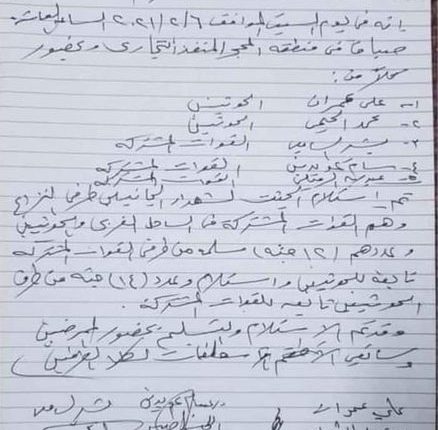 بانه في يوم السبت الموافق ٢٠٢١/٢/٦ الساعة
صباحا في منطقة الحجر المنفذ التجاري وبحضور
كلا من :
١- علي عمران الحوثيين
٢- محمد الحوثيين
٣- القوات المشتركة
٤- بسام القوات المشتركة
٥- القوات المشتركة
تم استلام الجثث لشهداء الجانبين طرفي النزاع
وهم القوات المشتركة في الساحل الغربي والحوثيين
وعددهم (١٢ جثه) مسلمه من طرف القوات المشتركه
تابعة للحوثيين واستلام وعدد (١٤) جثه من طرف
الحوثيين تابعه للقوات المشتركة .
وقد تم الاستلام والتسليم بحضور
وسائقي لكلا الطرفين
علي عمران